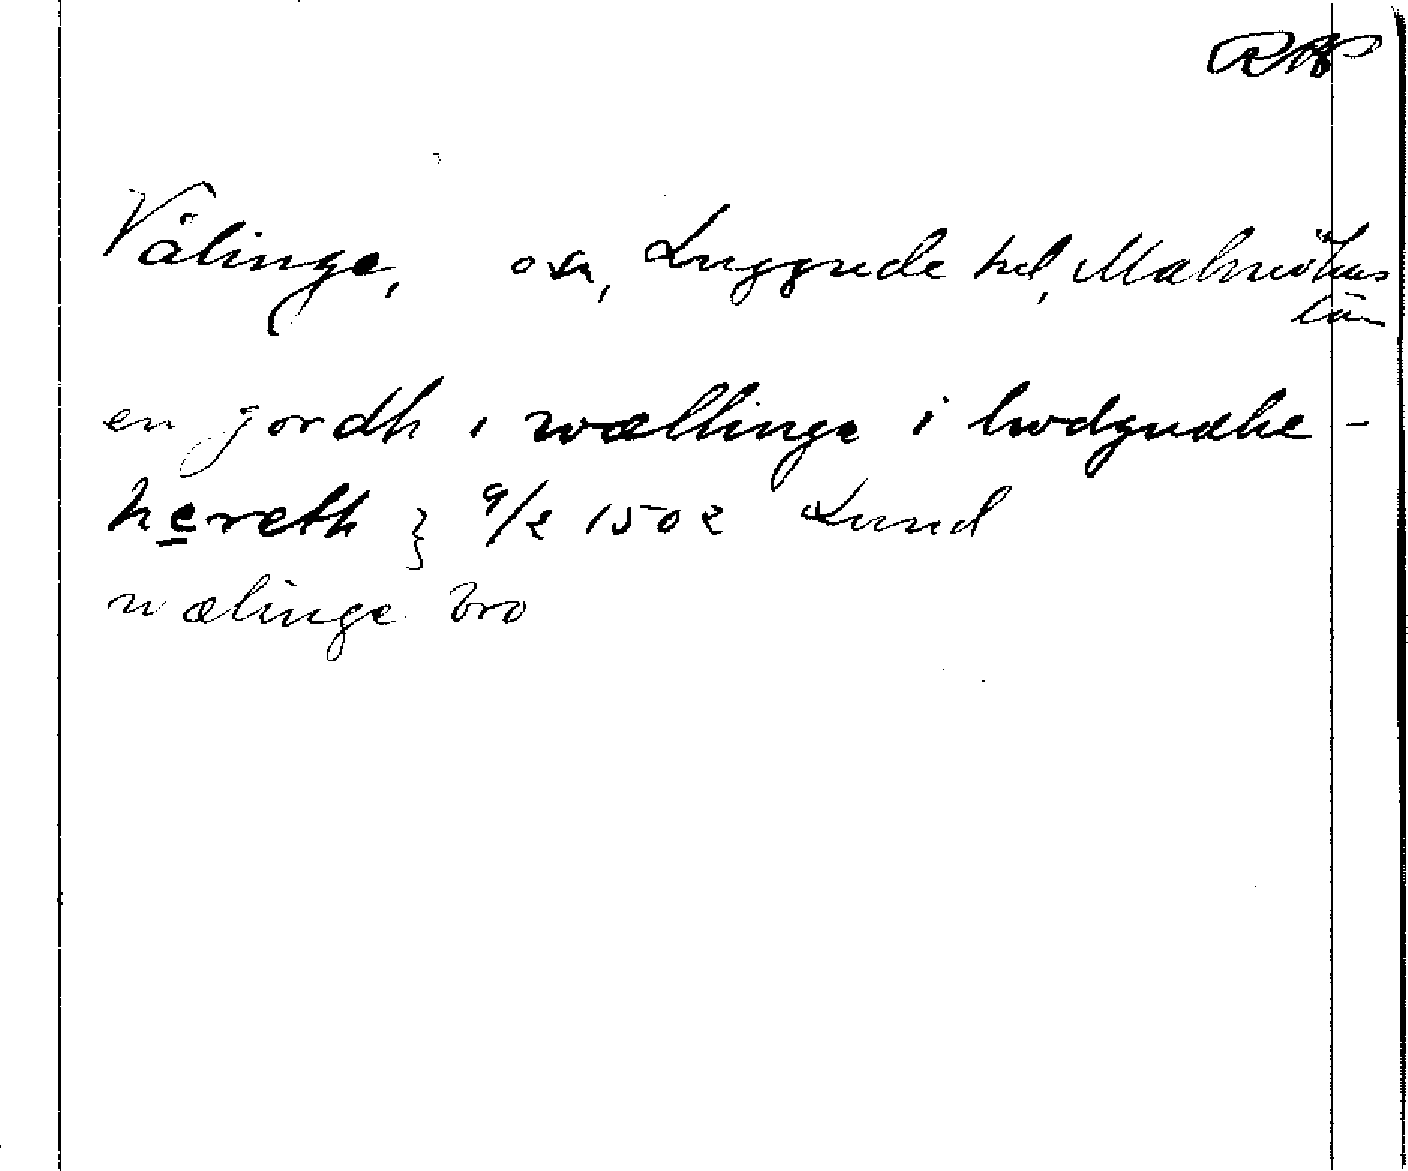 RAP
Välinge, sn, Luggude hd, Malmöhus
län
en jordh i wællinge i lwdgudhe-
hereth } 9/2 1502 Lund
wælinge bro